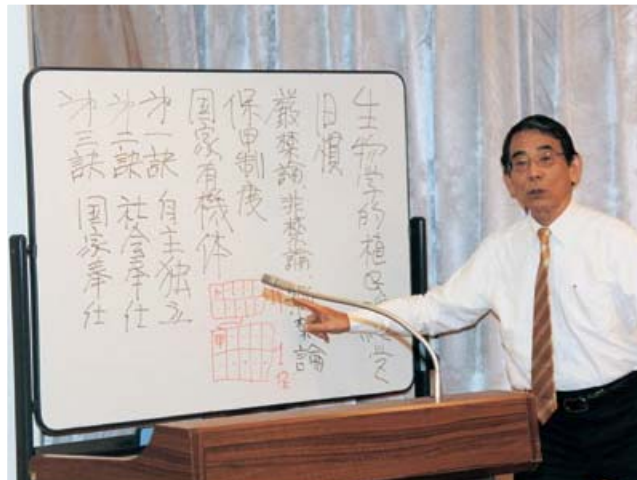 生物学的植民地経営
旧慣
厳禁論、非禁論、漸禁論
保甲制度
国家有機体
甲
1保
才一訣 自主独立
才二訣 社会奉仕
才三訣 国家奉仕